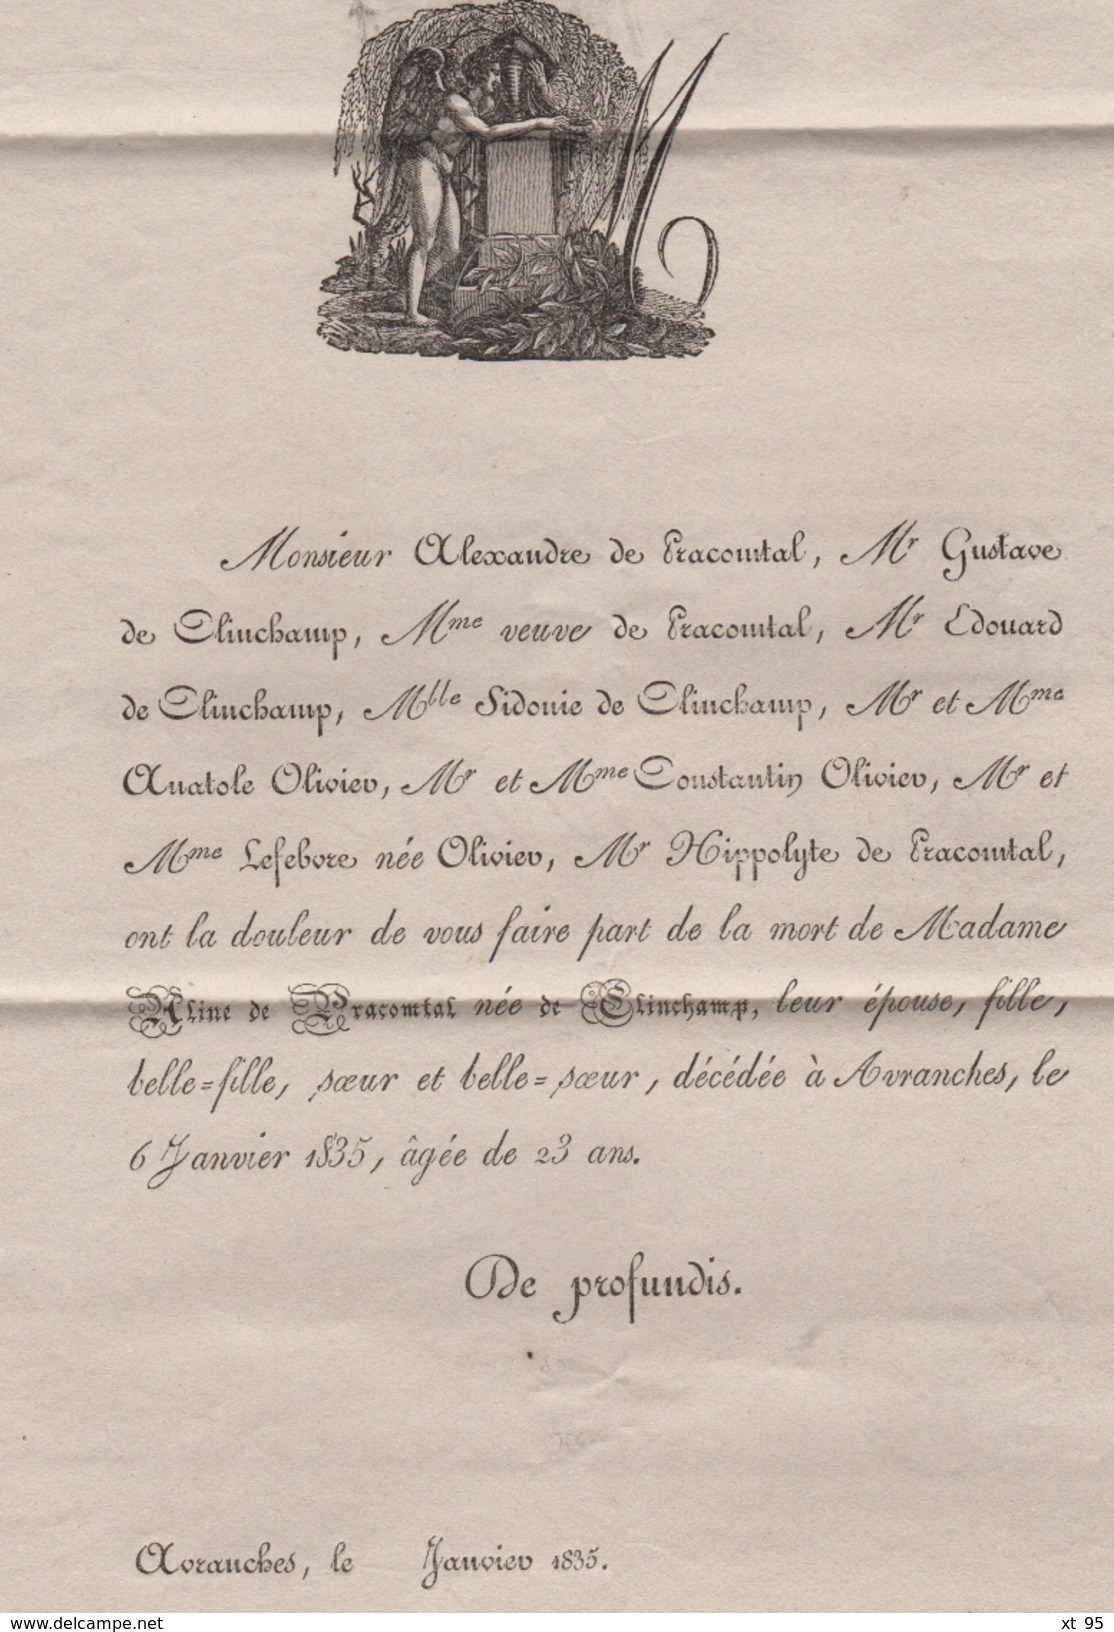 M
Monsieur Alexandre de Pracomtal, Mr Gustave
de Clinchamp, Mme veuve de Pracomtal, Mr Edouard
de Clinchamp, Mlle Sidonie de Clinchamp, Mr et Mme
Anatole Olivier, Mr et Mme Constantin Olivier, Mr et
Mme Lefebvre née Olivier, Mr Hippolyte de Pracomtal,
ont la douleur de vous faire part de la mort de Madame
Aline de Pracomtal née de Clinchamp, leur épouse, fille,
belle=fille, sœur et belle=sœur, décédée à Avranches, le
6 Janvier 1835, âgée de 23 ans.
De profundis.
Avranches, le Janvier 1835.
www.delcampe.net
xt 95